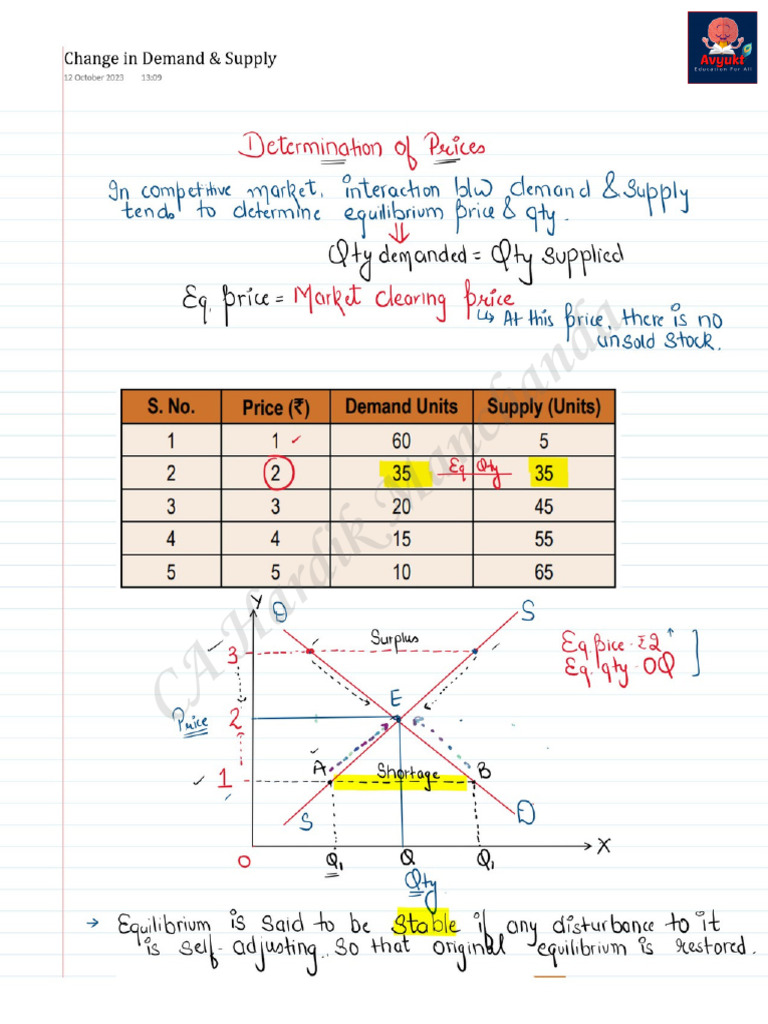 Avyukt
Education For All
Change in Demand & Supply
12 October 2023 13:09
Determination of Prices
In competitive market, interaction b/w demand & supply
tends to determine equilibrium price & qty.
⇓
Qty demanded = Qty supplied
Eq. price = Market clearing price
↳ At this price, there is no
unsold stock.
S. No. Price (₹) Demand Units Supply (Units)
1 1 ✓ 60 5
2 2 35 Eq Qty 35
3 3 20 45
4 4 15 55
5 5 10 65
CA Hardik Manchanda
Y
D S
Surplus
3
Eq. price - ₹2
Eq. qty - OQ
E
Price 2 P
A Shortage B
1
S D
O Q₁ Q Q₁ X
Qty
→ Equilibrium is said to be stable if any disturbance to it
is self-adjusting. So that original equilibrium is restored.